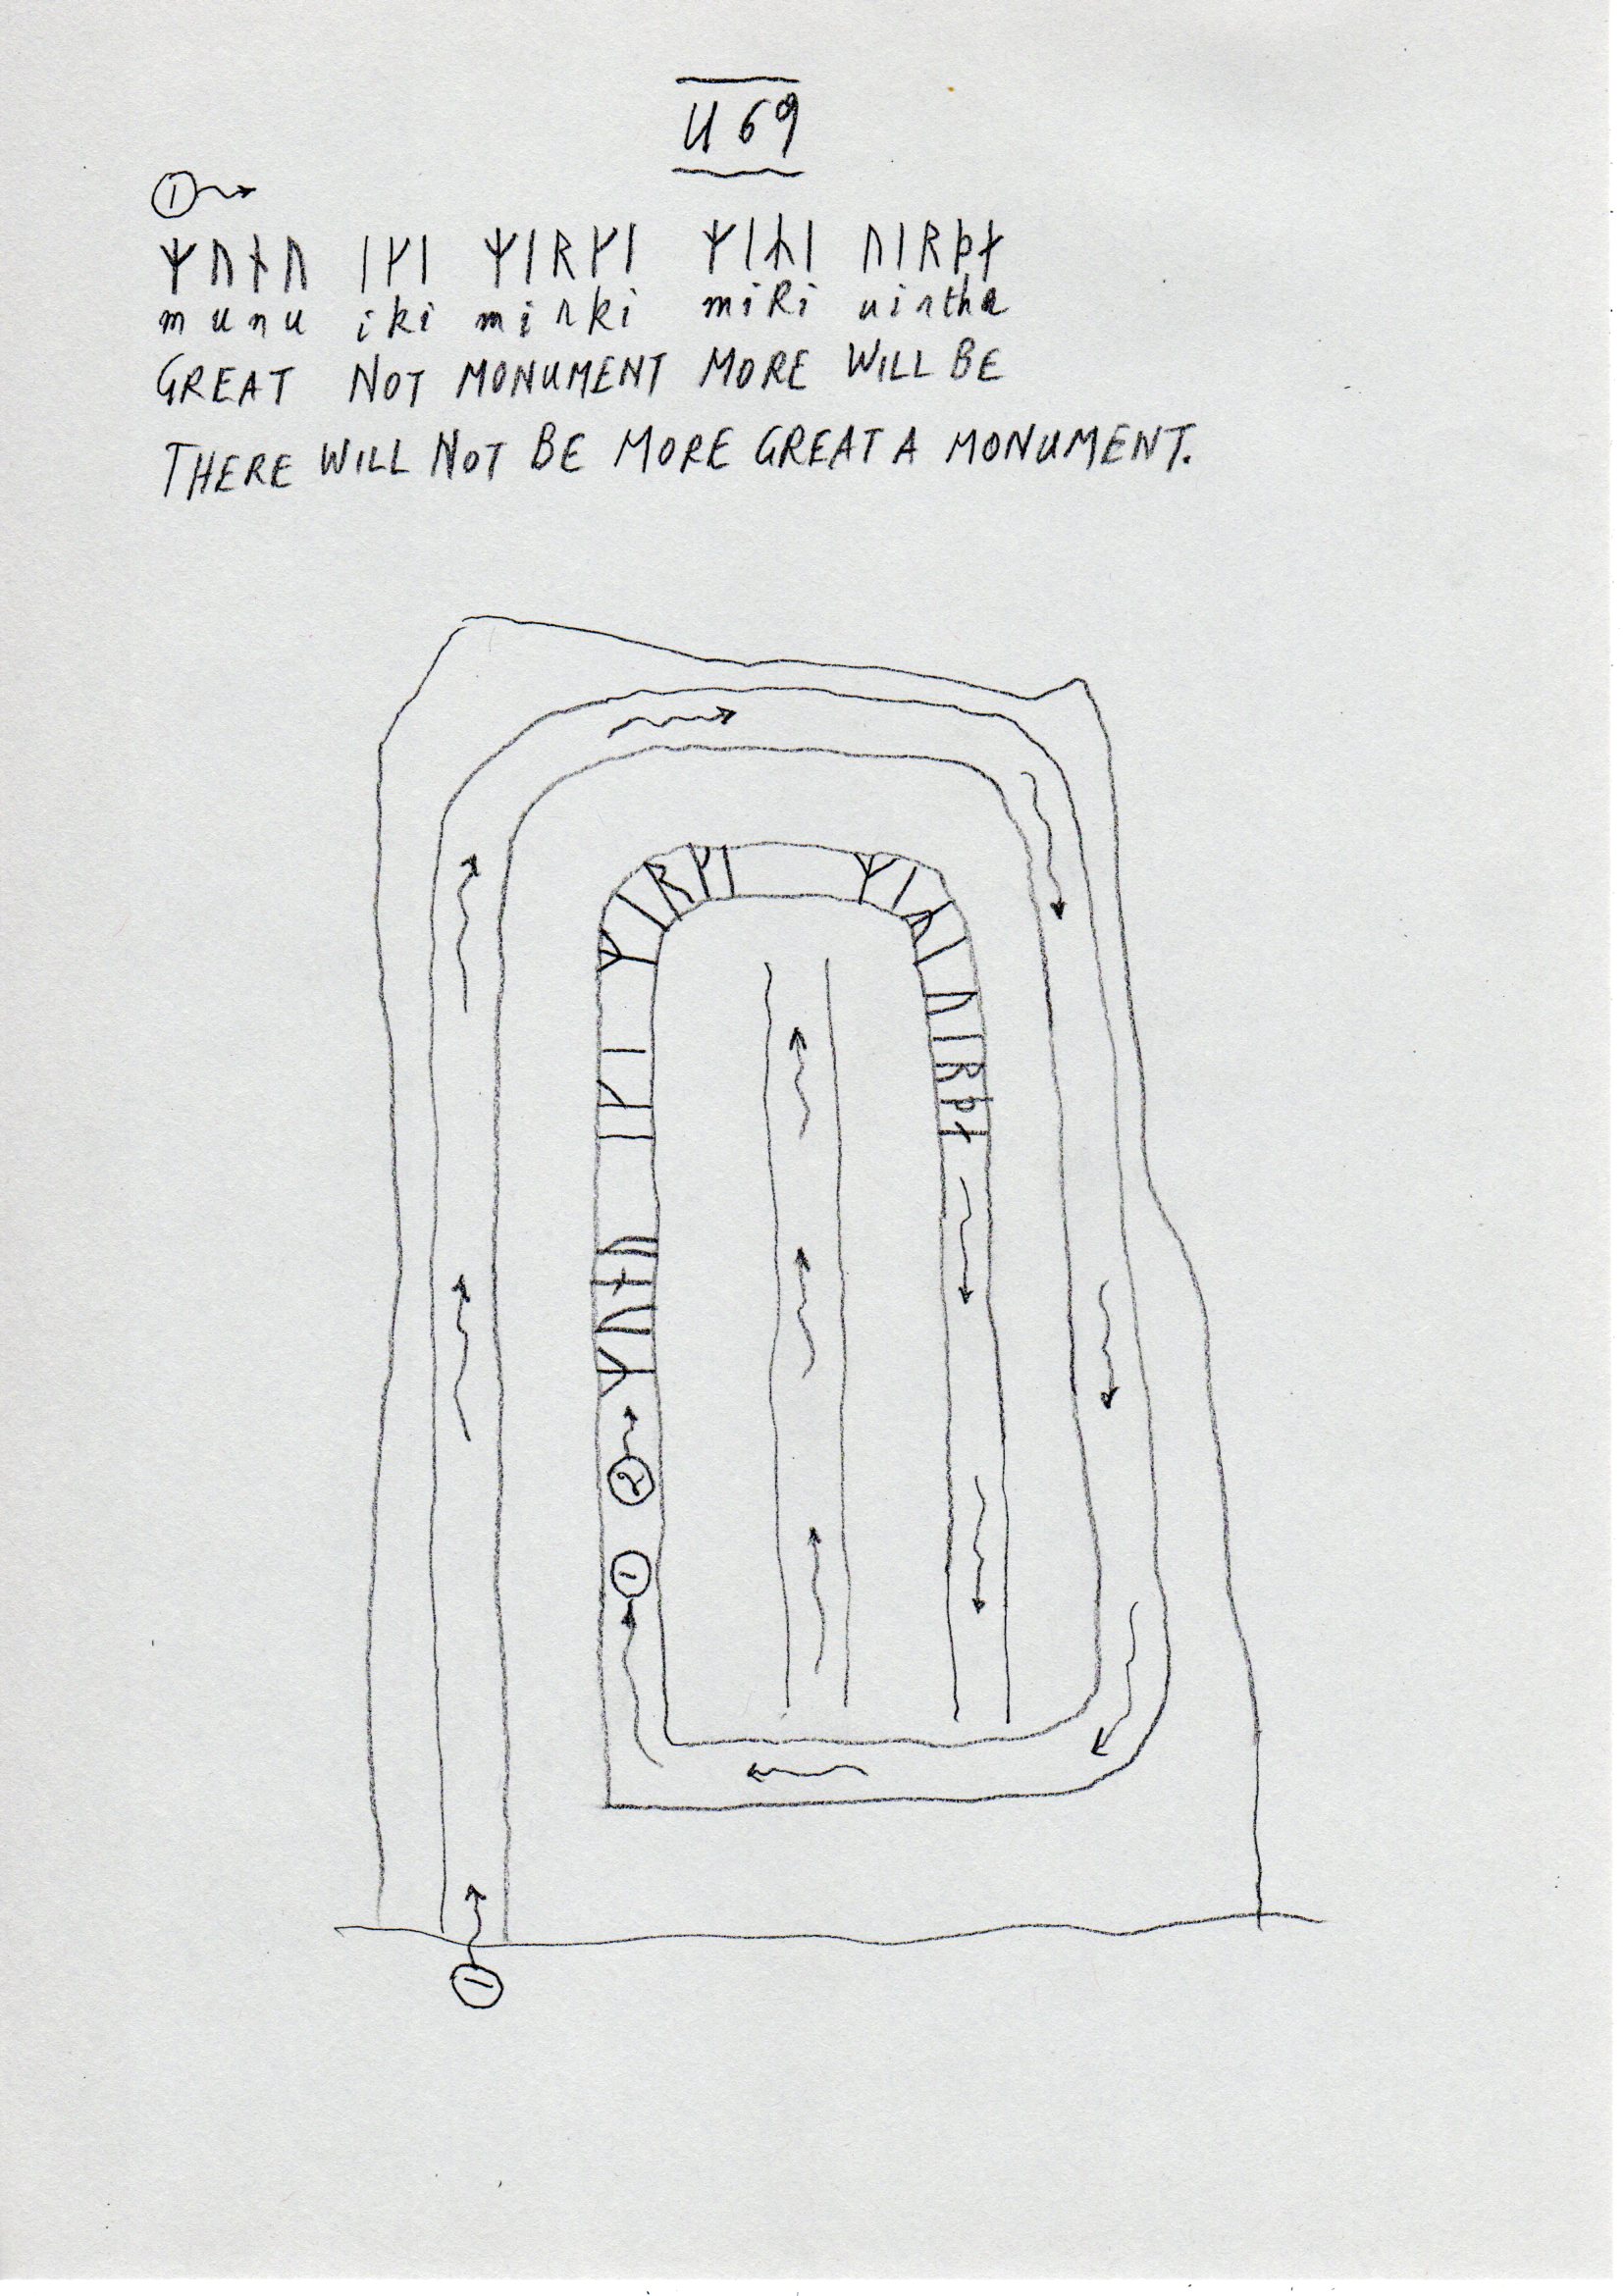 U 69
①
ᛉᚢᚾᚢ ᛁᚴᛁ ᛉᛁᚱᚴᛁ ᛉᛁᛦᛁ ᚢᛁᚱᚦᛅ
munu iki mirki miRi uirtha
GREAT NOT MONUMENT MORE WILL BE
THERE WILL NOT BE MORE GREAT A MONUMENT.
ᛉᛁᚱᚴᛁ ᛉᛁᛦᛁ
ᛁᚴᛁ ᚢᛁᚱᚦᛅ
ᛉᚢᚾᚢ
②
①
①